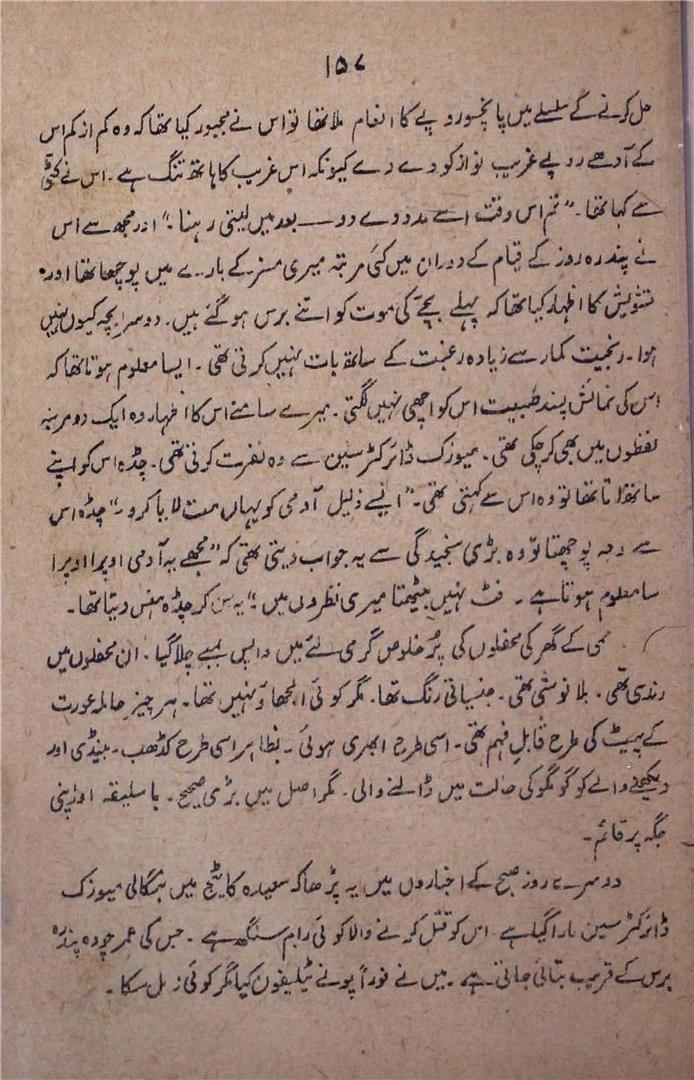 ۱۵۷
حل کرنے کے سلسلے میں پانچسو روپے کا انعام ملا تھا تو اس نے مجبور کیا تھا کہ وہ کم از کم اس
کے آدھے روپے غریب نواز کو دے دے کیونکہ اس غریب کا ہاتھ تنگ ہے۔ اس نے کئی
سے کہا تھا۔ "تم اس وقت اسے مدد دے دو — بعد میں لیتی رہنا۔" اور مجھ سے اس
نے پندرہ روز کے قیام کے دوران میں کئی مرتبہ میری مسز کے بارے میں پوچھا تھا اور
تشویش کا اظہار کیا تھا کہ پہلے بچے کی موت کو اتنے برس ہو گئے ہیں۔ دوسرا بچہ کیوں نہیں
ہوا۔ رنجیت کمار سے زیادہ رغبت کے ساتھ بات نہیں کرتی تھی۔ ایسا معلوم ہوتا تھا کہ
اس کی نمائش پسند طبیعت اس کو اچھی نہیں لگتی۔ میرے سامنے اس کا اظہار وہ ایک دو مرتبہ
لفظوں میں بھی کر چکی تھی۔ میوزک ڈائرکٹر سین سے وہ نفرت کرتی تھی۔ چڈہ اس کو اپنے
ساتھ لاتا تھا تو وہ اس سے کہتی تھی۔ "ایسے ذلیل آدمی کو یہاں مت لایا کرو۔" چڈہ اس
سے وجہ پوچھتا تو وہ بڑی سنجیدگی سے یہ جواب دیتی تھی کہ "مجھے یہ آدمی اوپرا اوپرا
سا معلوم ہوتا ہے۔ فٹ نہیں بیٹھتا میری نظروں میں۔" یہ سن کر چڈہ ہنس دیتا تھا۔
ممی کے گھر کی محفلوں کی پُر خلوص گرمی لئے میں واپس بمبے چلا گیا۔ ان محفلوں میں
رندی تھی۔ بلا نوشی تھی۔ جنسیاتی رنگ تھا۔ مگر کوئی الجھاؤ نہیں تھا۔ ہر چیز حاملہ عورت
کے پیٹ کی طرح قابلِ فہم تھی۔ اسی طرح ابھری ہوئی۔ بظاہر اسی طرح کڈھب۔ بینڈی اور
دیکھنے والے کو گومگو کی حالت میں ڈالنے والی۔ مگر اصل میں بڑی صحیح۔ با سلیقہ اور اپنی
جگہ پر قائم۔
دوسرے روز صبح کے اخباروں میں یہ پڑھا کہ سعیدہ کاٹیج میں بنگالی میوزک
ڈائرکٹر سین مارا گیا ہے۔ اس کو قتل کرنے والا کوئی رام سنگھ ہے۔ جس کی عمر چودہ پندرہ
برس کے قریب بتائی جاتی ہے۔ میں نے فوراً پونے ٹیلیفون کیا مگر کوئی نہ مل سکا۔